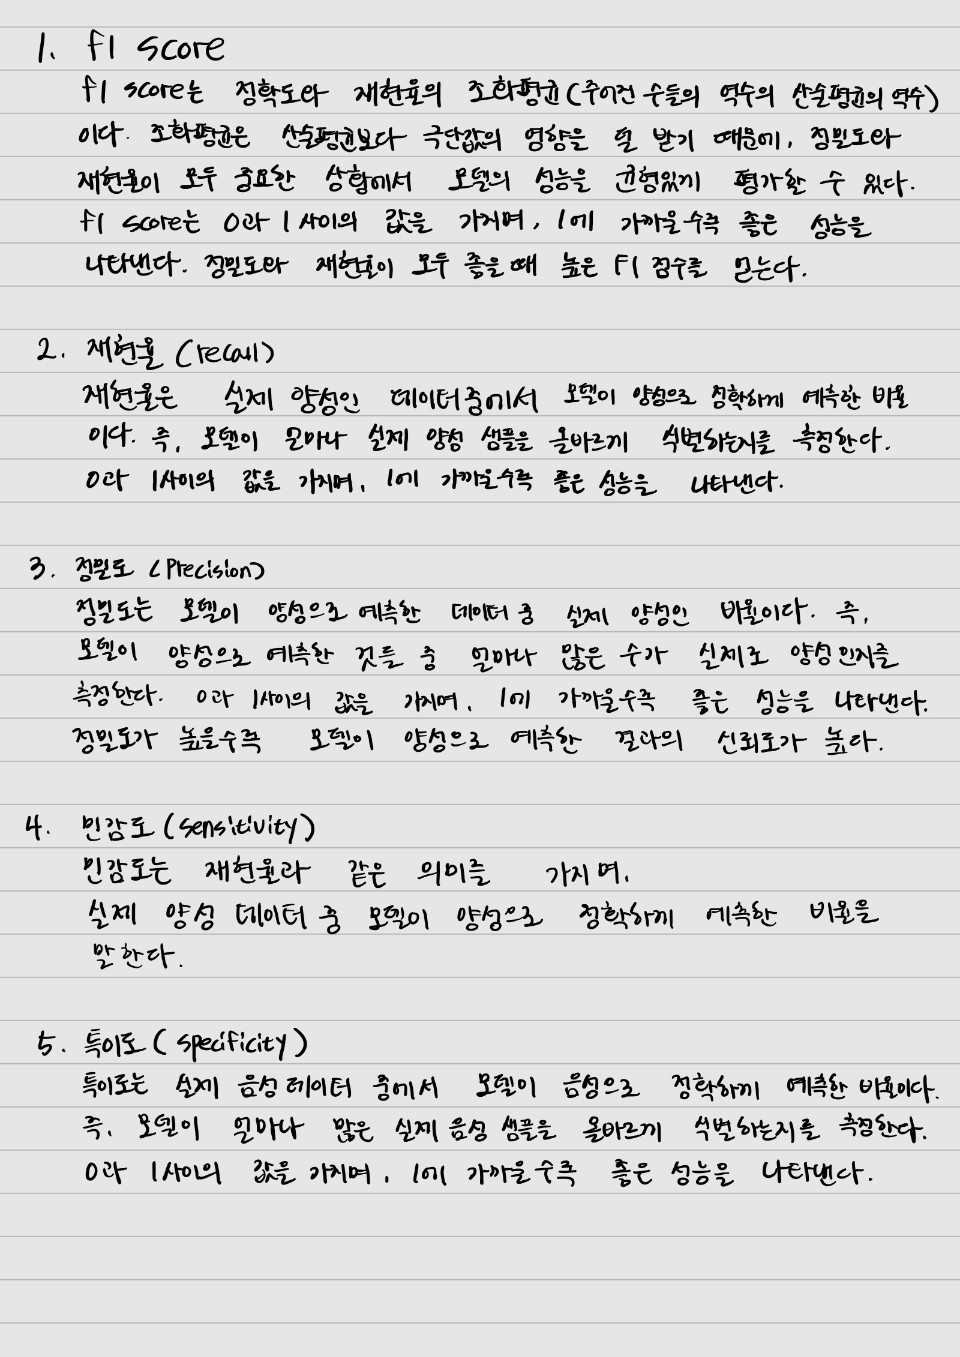 1. f1 score
f1 score는 정확도와 재현율의 조화평균(주어진 수들의 역수의 산술평균의 역수)
이다. 조화평균은 산술평균보다 극단값의 영향을 덜 받기 때문에, 정밀도와
재현율이 모두 중요한 상황에서 모델의 성능을 균형있게 평가할 수 있다.
f1 score는 0과 1 사이의 값을 가지며, 1에 가까울수록 좋은 성능을
나타낸다. 정밀도와 재현율이 모두 높을때 높은 F1 점수를 얻는다.
2. 재현율 (recall)
재현율은 실제 양성인 데이터중에서 모델이 양성으로 정확하게 예측한 비율
이다. 즉, 모델이 얼마나 실제 양성 샘플을 올바르게 식별하는지를 측정한다.
0과 1사이의 값을 가지며, 1에 가까울수록 좋은 성능을 나타낸다.
3. 정밀도 (Precision)
정밀도는 모델이 양성으로 예측한 데이터 중 실제 양성인 비율이다. 즉,
모델이 양성으로 예측한 것들 중 얼마나 많은 수가 실제로 양성인지를
측정한다. 0과 1사이의 값을 가지며, 1에 가까울수록 좋은 성능을 나타낸다.
정밀도가 높을수록 모델이 양성으로 예측한 결과의 신뢰도가 높다.
4. 민감도 (sensitivity)
민감도는 재현율과 같은 의미를 가지며,
실제 양성 데이터 중 모델이 양성으로 정확하게 예측한 비율을
말한다.
5. 특이도 (specificity)
특이도는 실제 음성 데이터 중에서 모델이 음성으로 정확하게 예측한 비율이다.
즉, 모델이 얼마나 많은 실제 음성 샘플을 올바르게 식별하는지를 측정한다.
0과 1사이의 값을 가지며, 1에 가까울수록 좋은 성능을 나타낸다.